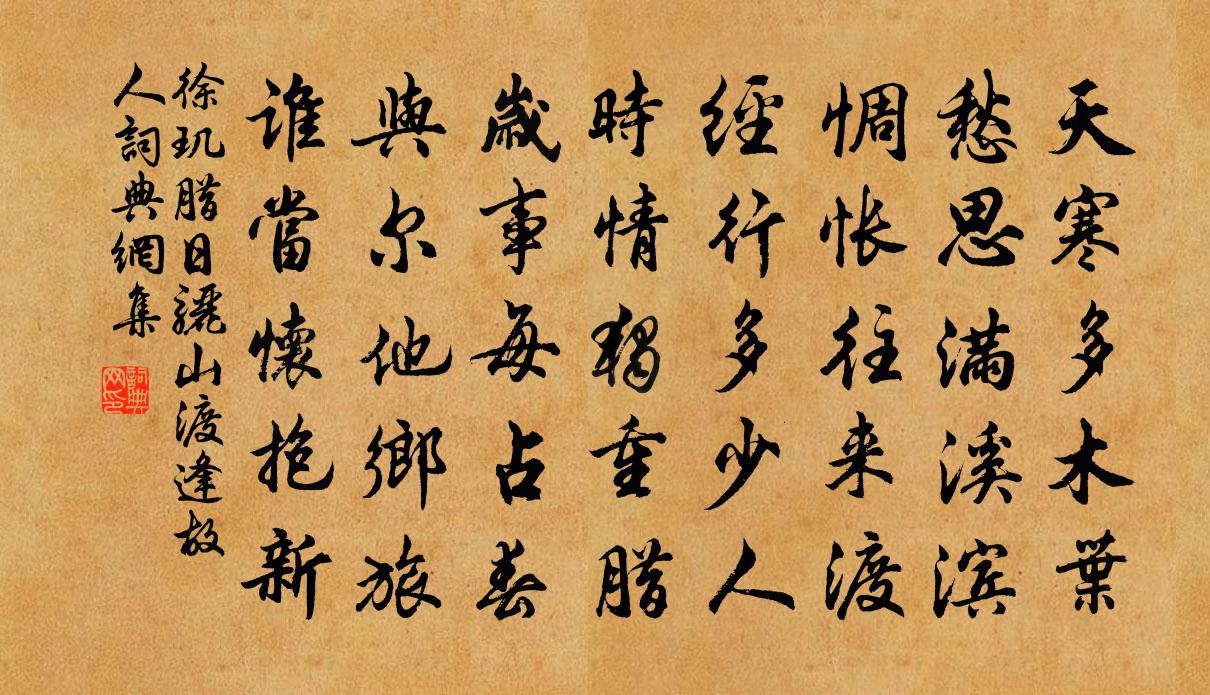 天寒多木葉
愁思满溪滨
惆怅往来渡
經行多少人
時情獨重腊
歲事每占春
與尔他鄉旅
誰當懷抱新
徐玑腊日驪山渡逢故
人詞典網集
詞典
网印